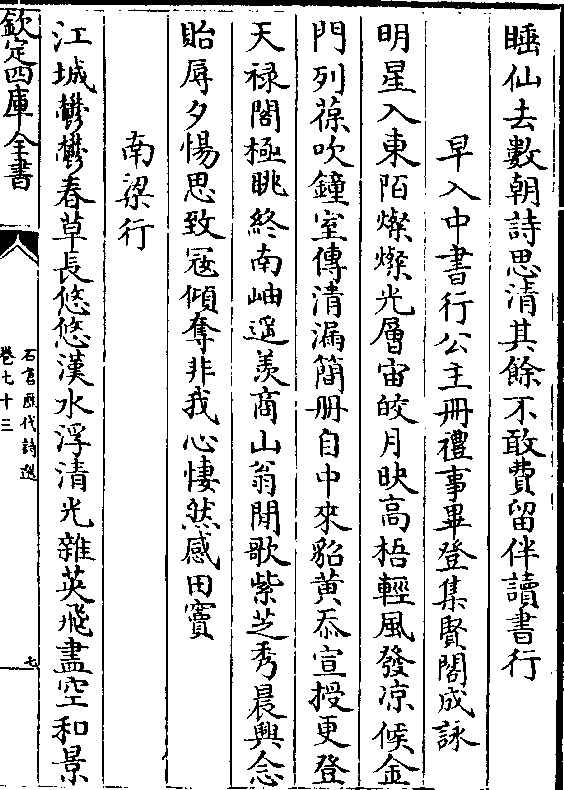 睡仙去數朝詩思清其餘不敢費留伴讀書行
早入中書行公主冊禮事畢登集賢閣成詠
明星入東陌燦燦光層宙皎月映高梧輕風發凉候金
門列葆吹鐘室傳清漏簡冊自中來貂黄忝宣授更登
天禄閣極眺終南岫遥羨商山翁閒歌紫芝秀晨興念
貽辱夕惕思致冦傾奪非我心悽然感田竇
南梁行
江城鬱鬱春草長悠悠漢水浮清光雜英飛盡空和景
欽定四庫全書
石倉歷代詩選
卷七十三
七